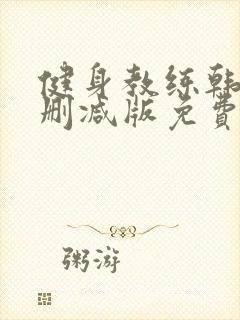 健身教练韩
删减版免費
粥游